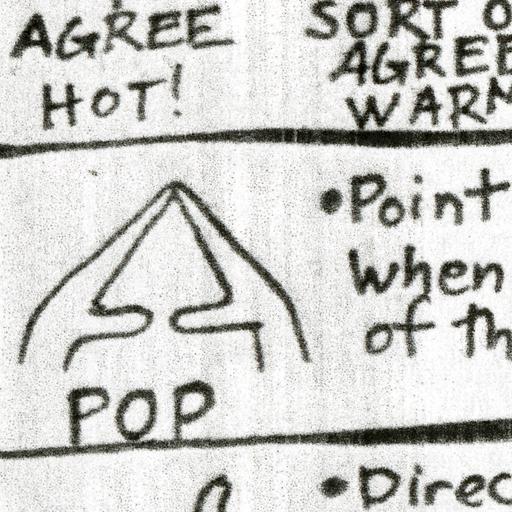 AGREE
HOT!
SORT O
AGREE
WARM
POP
•Point
when
of th
•Direc